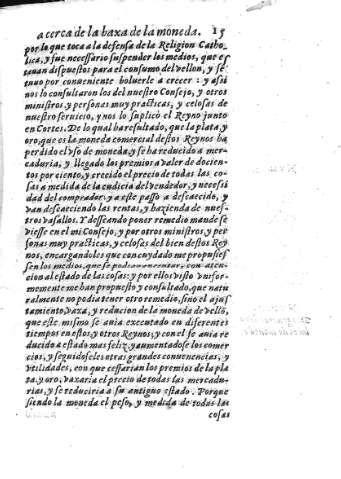 acerca de la baxa de la moneda. 15
por lo que toca a la defensa de la Religion Catho-
lica, y fue necessario suspender los medios, que es
tauan dispuestos para el consumo del vellon, y se
tuuo por conueniente boluerle a crecer: y assi
nos lo consultaron los del nuestro Consejo, y otros
ministros, y personas muy practicas, y celosas de
nuestro seruicio, y nos lo suplicò el Reyno junto
en Cortes. De lo qual ha resultado, que la plata, y
oro, que es la moneda comercial destos Reynos ha
perdido el vso de moneda, y se ha reducido a mer-
caduria, y llegado los premios a valer de docien-
tos por ciento, y crecido el precio de todas las co-
sas a medida de la cudicia del vendedor, y necessi
dad del comprador, y a este passo à descaecido, y
van descaeciendo las rentas, y hazienda de nues-
tros vasallos. Y desseando poner remedio mande se
viesse en el mi Consejo, y por otros ministros, y per
sonas muy practicas, y celosas del bien destos Rey
nos, encargandoles que con cuydado me propusies
sen los medios, que se atencion
cion al estado de las cosas: y por ellos visto vnifor-
memente me han propuesto y consultado, que natu
ralmente no podia tener otro remedio, sino el ajus
tamiento, vaxa, y reducion de la moneda de vellõ,
que este mismo se auia executado en diferentes
tiempos en estos, y otros Reynos, y con el se auia re
ducido a estado mas feliz, y aumentadose los comer
cios, y seguidoseles otras grandes conueniencias, y
vtilidades, con que cessarian los premios de la pla
ta, y oro, vaxaria el precio de todas las mercadu-
rias, y se reduciria a su antiguo estado. Porque
siendo la moneda el peso, y medida de todas las
cosas